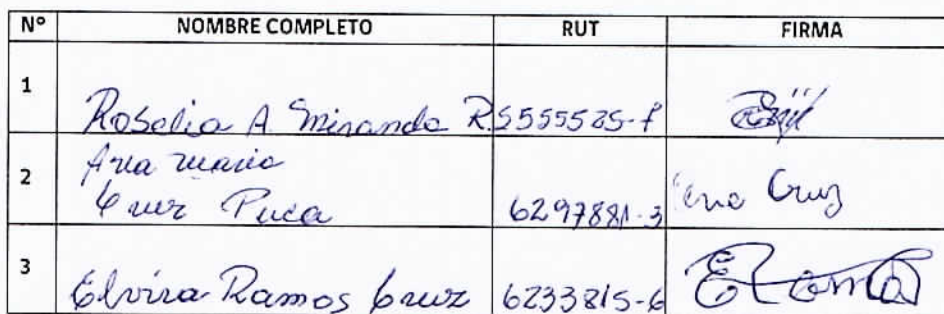 N° NOMBRE COMPLETO RUT FIRMA
1 Rosalia A. Miranda R. 5555525-
2 Ana Maria
Cruz Puca 6297881-3 Ana Cruz
3 Elvira Ramos Cruz 6233815-6